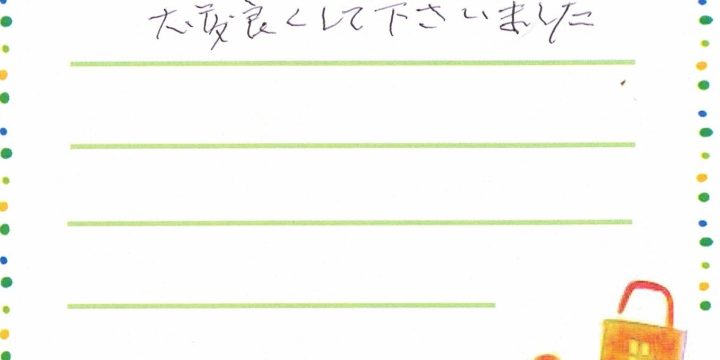 大変良くして下さいました